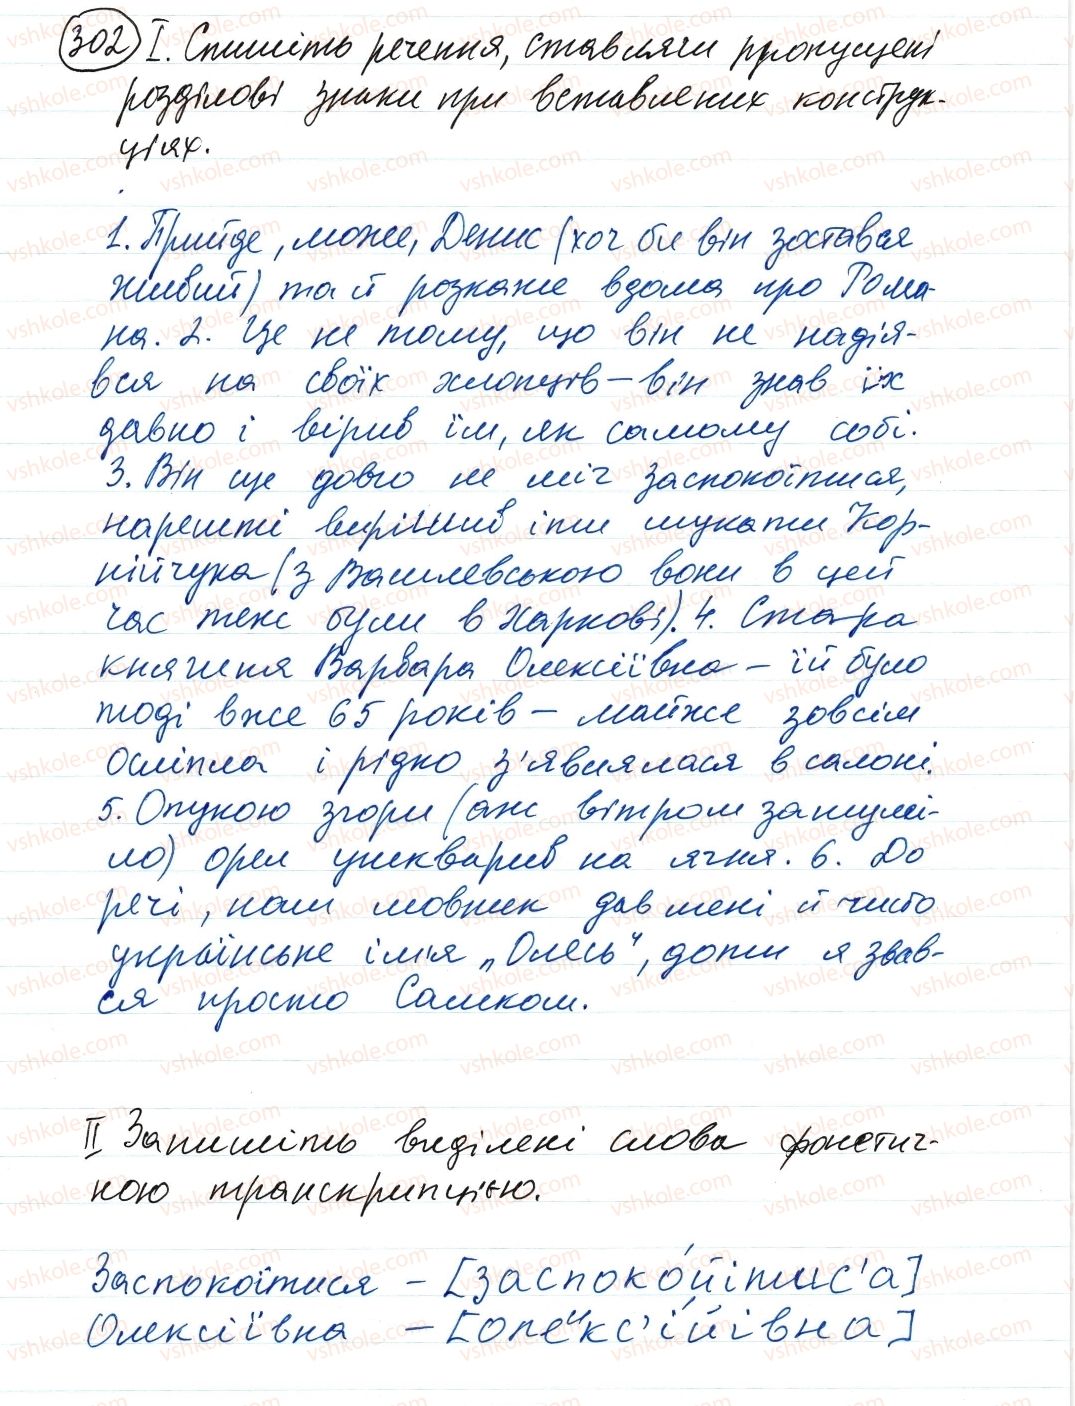 302 I. Спишіть речення, ставлячи пропущені
розділові знаки при вставлених конструк-
ціях.
1. Прийде, може, Денис (хоч би він зостався
живий) та й розкаже вдома про Рома-
на. 2. Це не тому, що він не надія-
вся на своїх хлопців – він знав їх
давно і вірив їм, як самому собі.
3. Він ще довго не міг заспокоїтися,
нарешті вирішив іти шукати Кор-
нійчука (з Василевською вони в цей
час теж були в Харкові). 4. Стара
княгиня Варвара Олексіївна – їй було
тоді вже 65 років – майже зовсім
осліпла і рідко з'являлася в салоні.
5. Опукою згори (аж вітром зашумі-
ло) орел ушкварив на ягня. 6. До
речі, наш мовник дав мені й чисто
українське ім'я „Олесь", доти я звав-
ся просто Сашком.
II Запишіть виділені слова фонетич-
ною транскрипцією.
Заспокоїтися – [заспоко́йітис'а]
Олексіївна – [оле<sup>и</sup>кс'і́йівна]